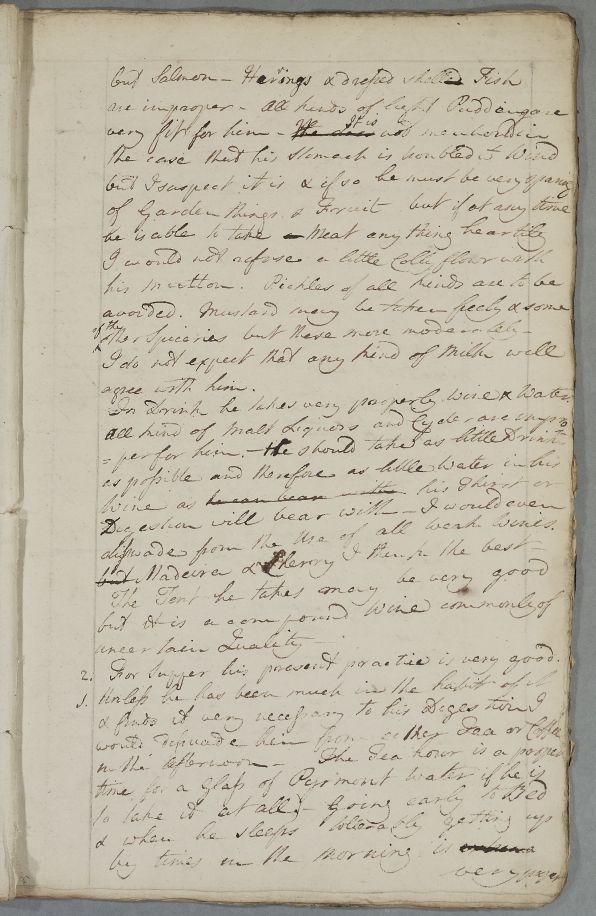 but Salmon - Herrings & dressed shell Fish
are improper - All kinds of light Puddings are
very fit for him - It is not mentioned in
the case that his Stomach is troubled wt. Wind
but I suspect it is & if so he must be very sparing
of Garden things & Fruit but if at any time
he is able to take Meat any thing heartily
I would not refuse a little Colly flower with
his mutton. Pickles of all kinds are to be
avoided. Mustard may be taken freely & some
of the
other Spiceries but these more moderately -
I do not expect that any kind of Milk will
agree with him.
In Drink he takes very properly wine & Water
all kind of Malt Liquors and Cyder are impro
= per for him. - He should take as little Drink
as possible and therefore as little Water in his
Wine as he can bear with his Thirst or
Digestion will bear with - I would even
disswade from the Use of all weak Wines.
but Madeira & Sherry I think the best -
The Tent he takes may be very good
but it is a compound Wine commonly of
uncertain Quality -
2. For Supper his present practice is very good.
1. Unless he has been much in the habit of it
& finds it very necessary to his Digestion I
would disswade him from either Tea or Coffee
in the Afternoon - The Tea hour is a proper
time for a Glass of Pyrmont Water if he is
to take it at all - Going early to Bed
& when he sleeps tolerably getting up
by times in the morning is
very